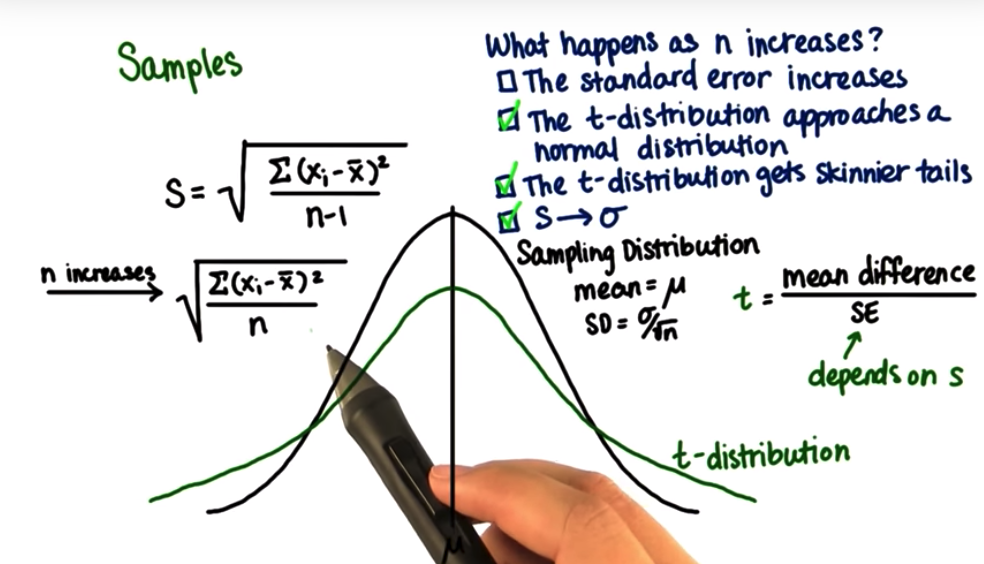 Samples
S = √(Σ(xᵢ-x̄)²/(n-1))
n increases → √(Σ(xᵢ-x̄)²/n)
What happens as n increases?
☐ The standard error increases
☑ The t-distribution approaches a
normal distribution
☑ The t-distribution gets skinnier tails
☑ S→σ
Sampling Distribution
mean = μ
SD = σ/√n
t = mean difference/SE
depends on s
t-distribution
μ